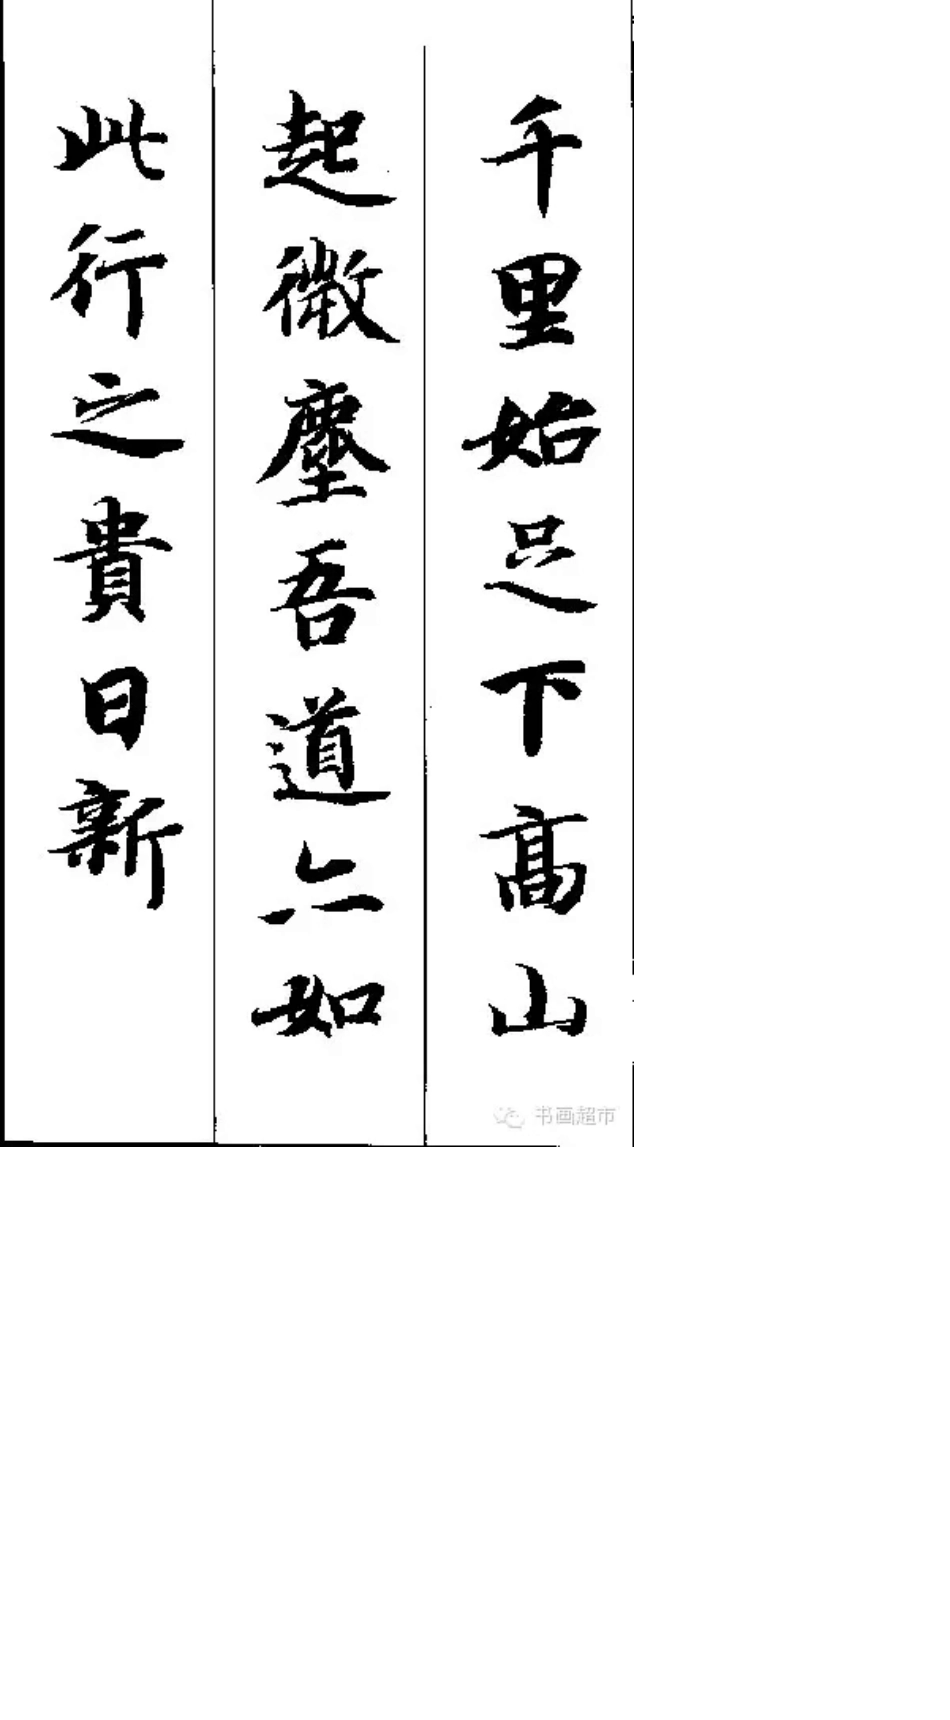 千里始足下高山
起微塵吾道亦如
此行之貴日新
书画超市